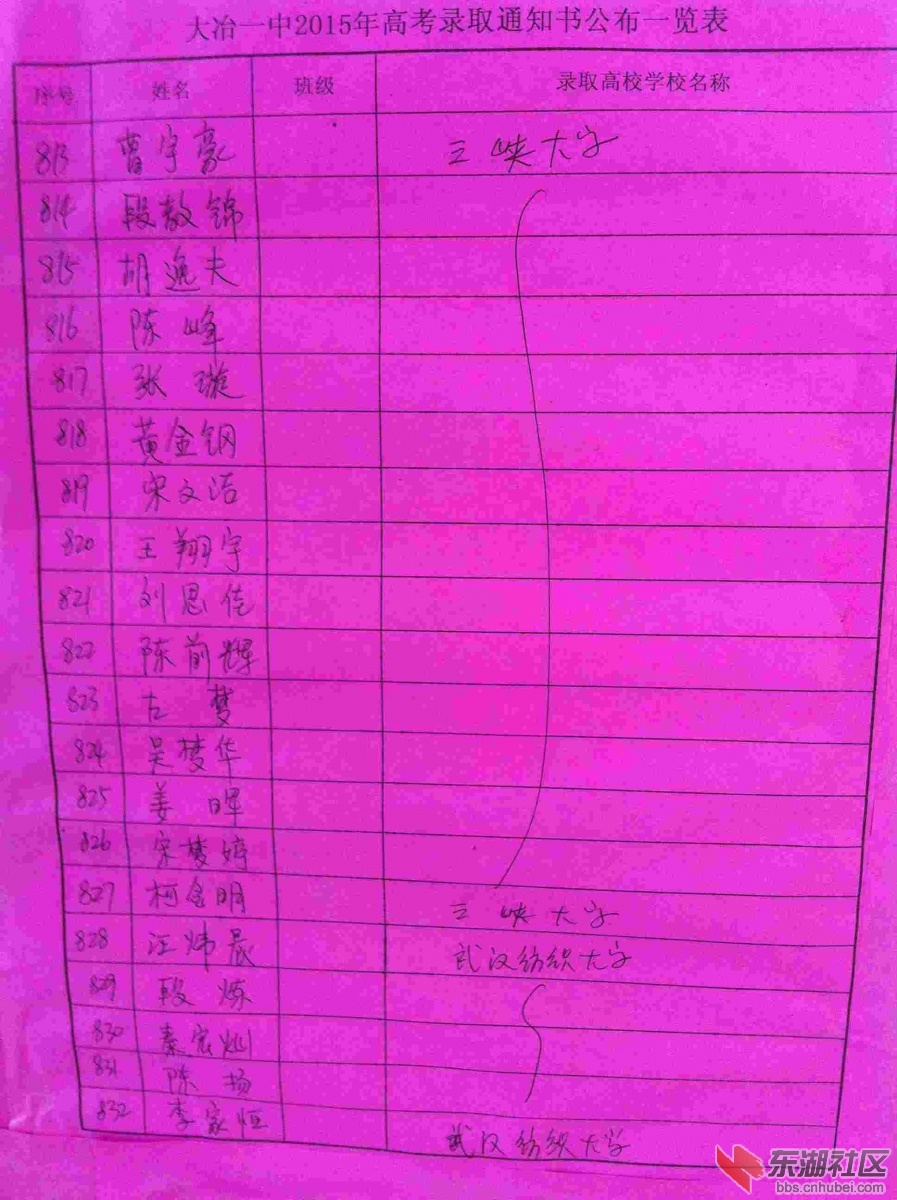 大冶一中2015年高考录取通知书公布一览表
序号 姓名 班级 录取高校学校名称
813 曹宇豪 三峡大学
814 段教锦
815 胡逸夫
816 陈峰
817 张璇
818 黄金钢
819 宋文洁
820 王翔宇
821 刘思佳
822 陈前辉
823 古梦
824 吴梦华
825 姜晖
826 宋梦婷
827 柯金明 三峡大学
828 汪炜晟 武汉纺织大学
829 段炼
830 秦宏灿
831 陈扬
832 李家恒 武汉纺织大学
东湖社区
bbs.cnhubei.com